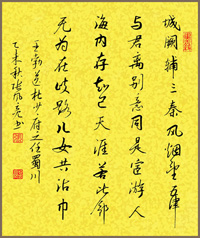 城阙辅三秦风烟望五津
与君离别意同是宦游人
海内存知己天涯若比邻
无为在歧路儿女共沾巾
王勃送杜少府之任蜀川
乙未秋